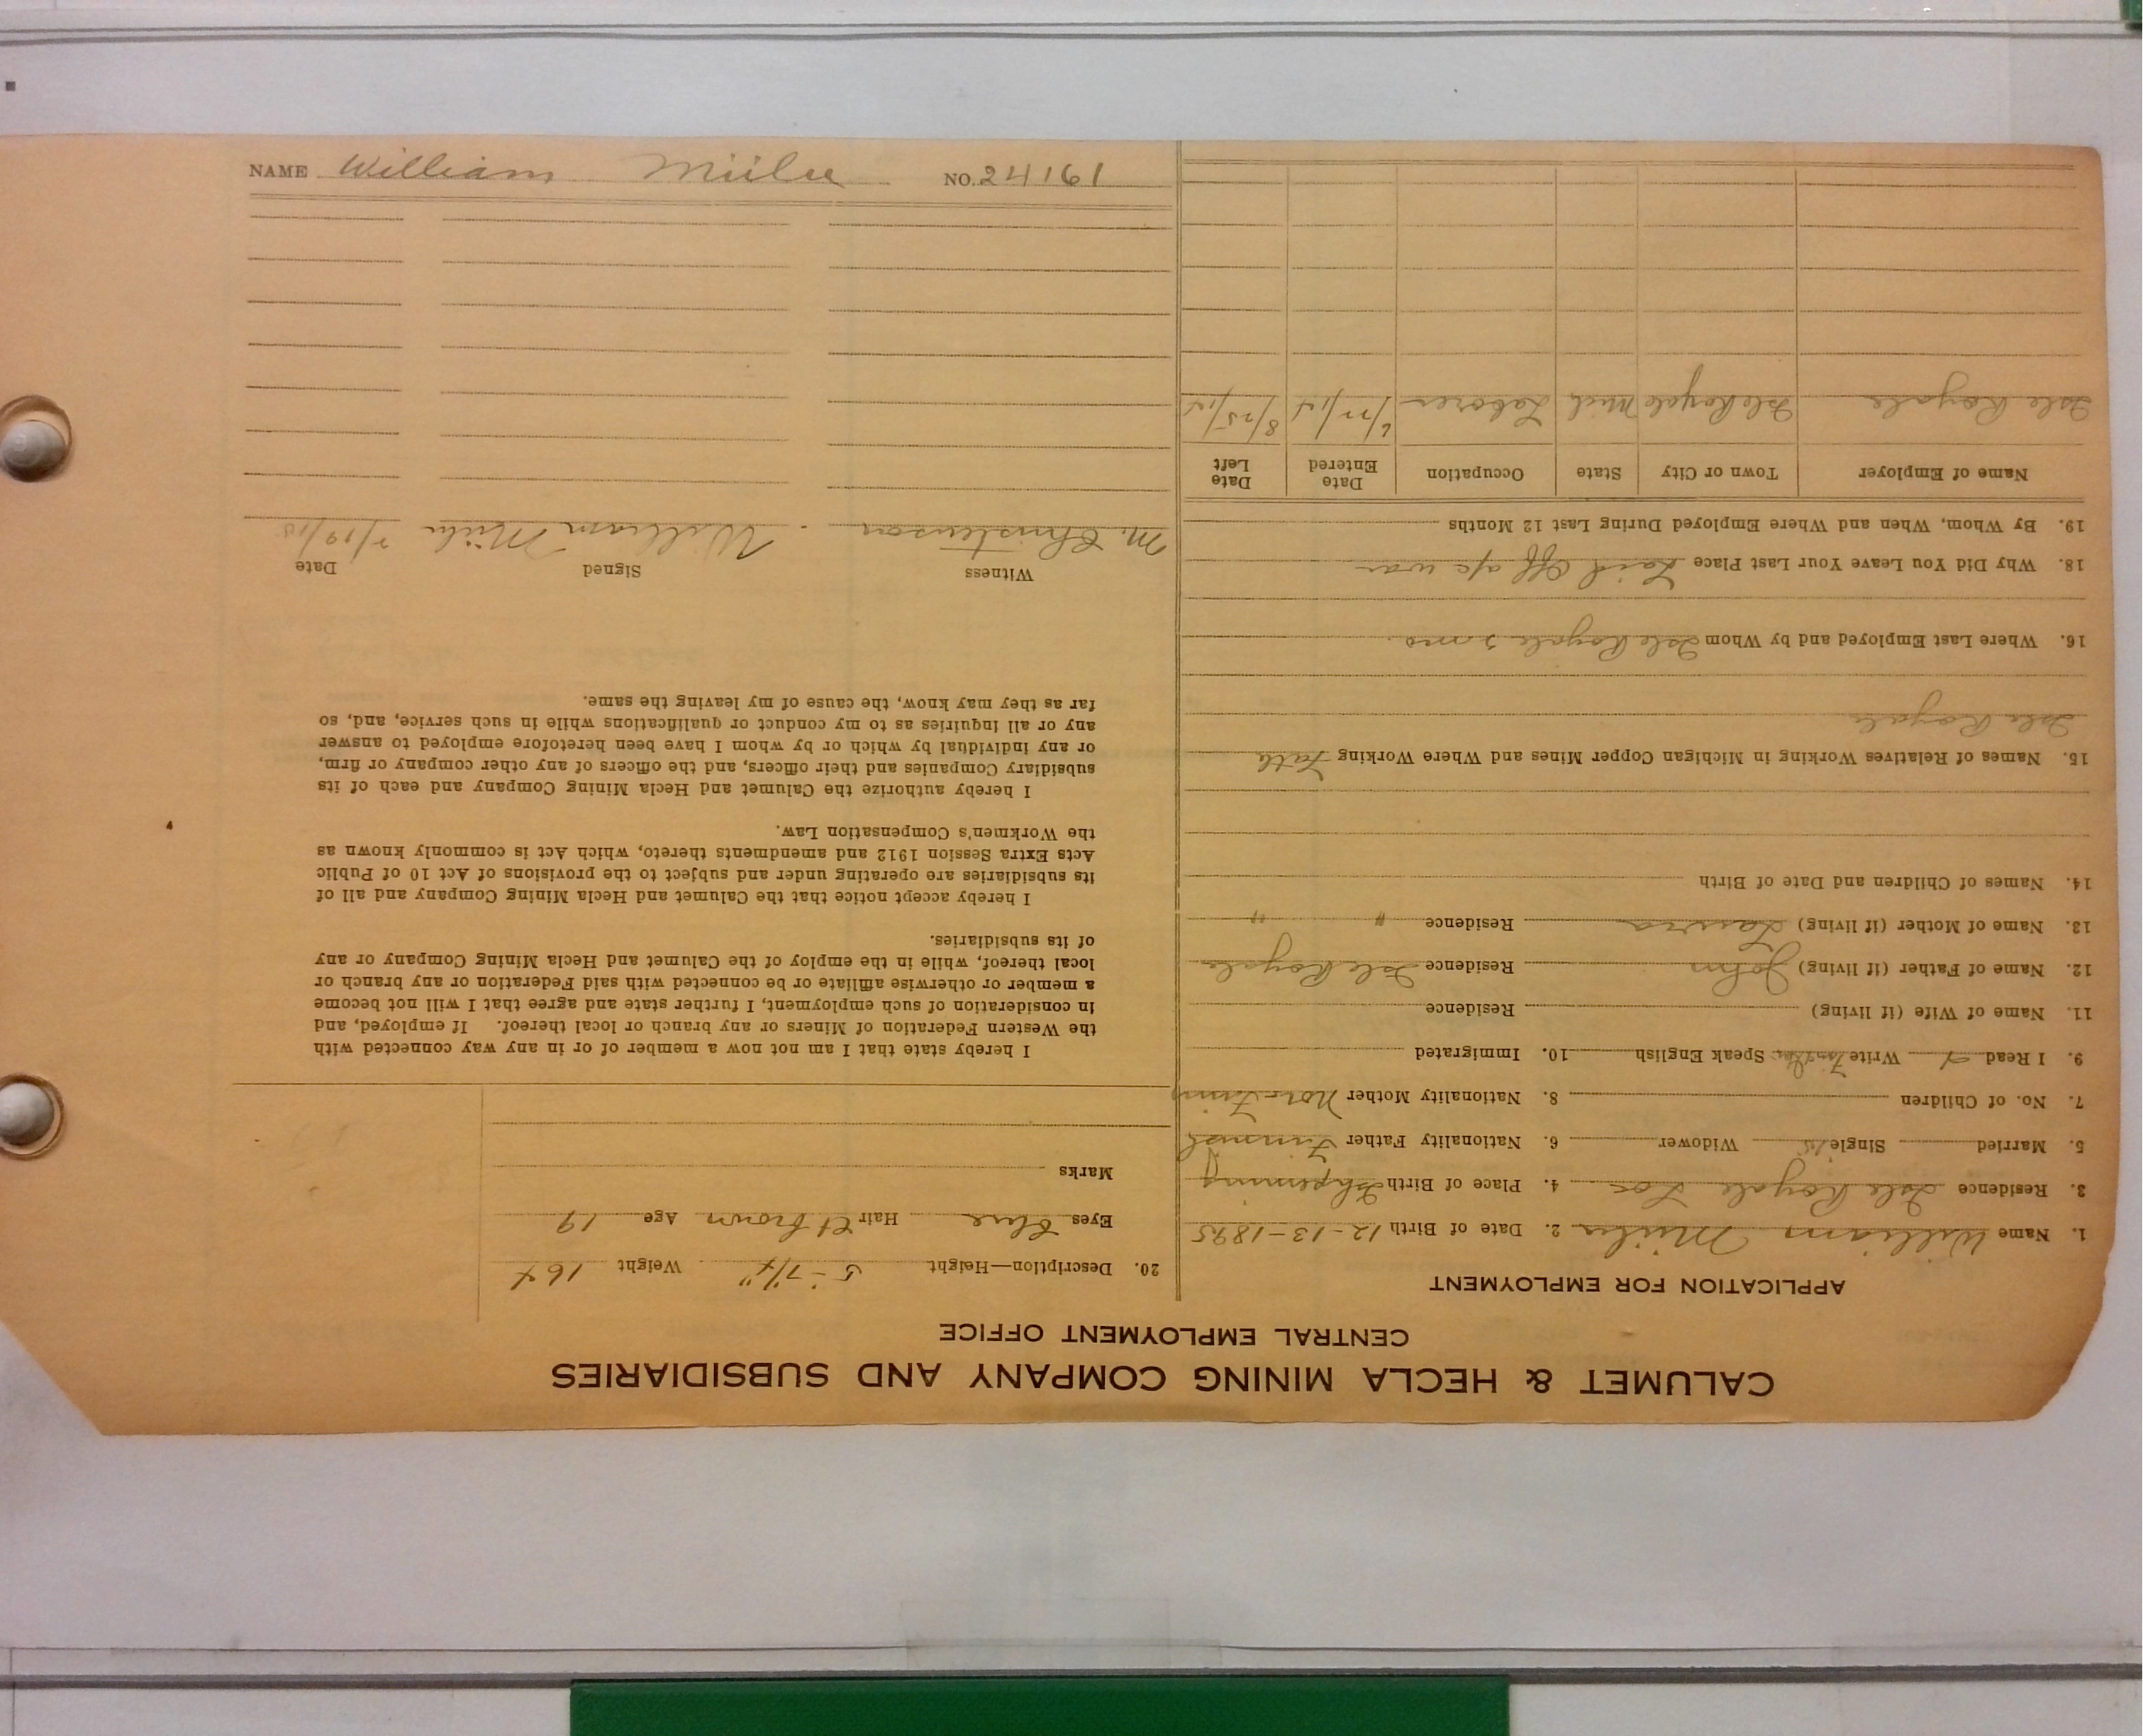 NAME William Miilu NO. 24161
CALUMET & HECLA MINING COMPANY AND SUBSIDIARIES
CENTRAL EMPLOYMENT OFFICE
APPLICATION FOR EMPLOYMENT
1. Name William Miilu 2. Date of Birth 12-13-1895
3. Residence Isle Royale Loc 4. Place of Birth Ishpeming
5. Married Single Widower 6. Nationality Father Finnish
7. No. of Children 8. Nationality Mother Nor-Finn
9. I Read Write Speak English 10. Immigrated
11. Name of Wife (if living) Residence
12. Name of Father (if living) John Residence Isle Royale
13. Name of Mother (if living) Laura Residence " "
14. Names of Children and Date of Birth
15. Names of Relatives Working in Michigan Copper Mines and Where Working Fath
Isle Royale
16. Where Last Employed and by Whom Isle Royale 2 mo.
18. Why Did You Leave Your Last Place Laid off a/c war
19. By Whom, When and Where Employed During Last 12 Months
Name of Employer Town or City State Occupation Date Entered Date Left
Isle Royale Isle Royale Mich Laborer 6/22/14 8/25/14
20. Description—Height 5-7 1/4" Weight 164
Eyes Blue Hair Lt brown Age 19
Marks
I hereby state that I am not now a member of or in any way connected with
the Western Federation of Miners or any branch or local thereof. If employed, and
in consideration of such employment, I further state and agree that I will not become
a member or otherwise affiliate or be connected with said Federation or any branch or
local thereof, while in the employ of the Calumet and Hecla Mining Company or any
of its subsidiaries.
I hereby accept notice that the Calumet and Hecla Mining Company and all of
its subsidiaries are operating under and subject to the provisions of Act 10 of Public
Acts Extra Session 1912 and amendments thereto, which Act is commonly known as
the Workmen's Compensation Law.
I hereby authorize the Calumet and Hecla Mining Company and each of its
subsidiary Companies and their officers, and the officers of any other company or firm,
or any individual by which or by whom I have been heretofore employed to answer
any or all inquiries as to my conduct or qualifications while in such service, and, so
far as they may know, the cause of my leaving the same.
Witness Signed Date
M. Christenson William Miilu 7/19/15